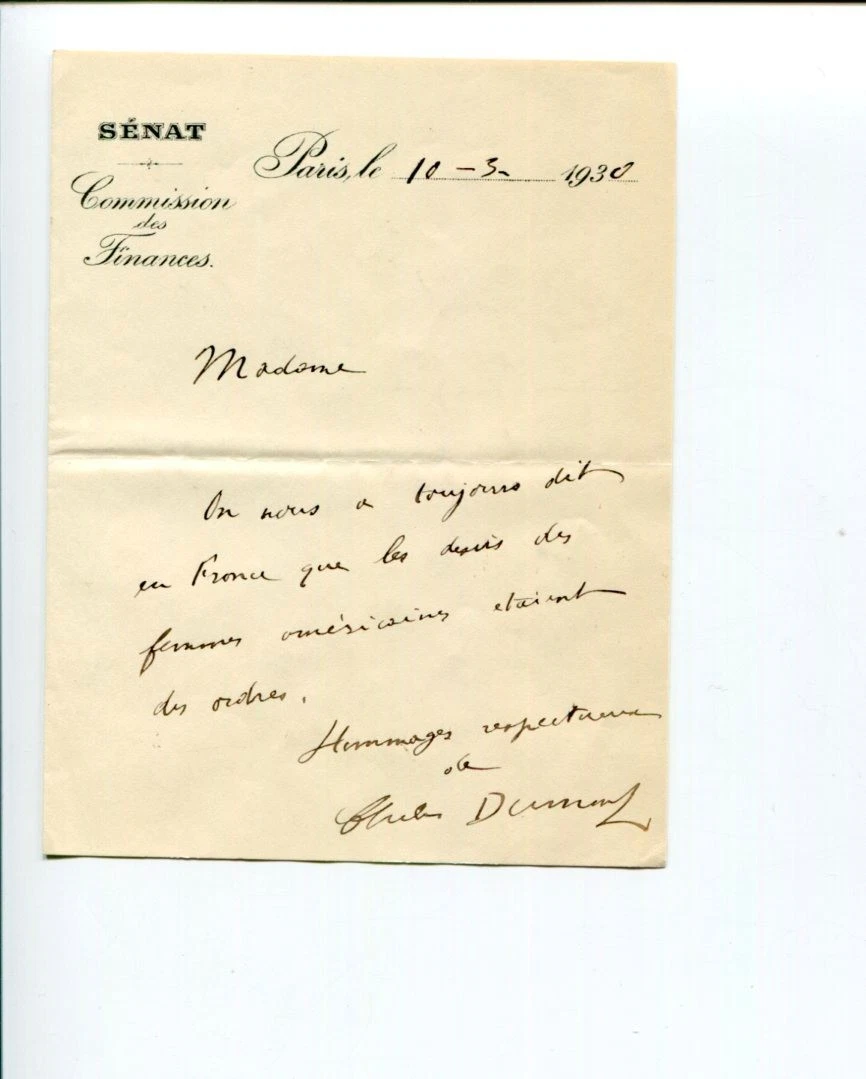 SÉNAT
Commission
des
Finances.
Paris, le 10 - 3 - 1930
Madame
On nous a toujours dit
en France que les désirs des
femmes américaines etaient
des ordres.
Hommages respectueux
de
Charles Dumont